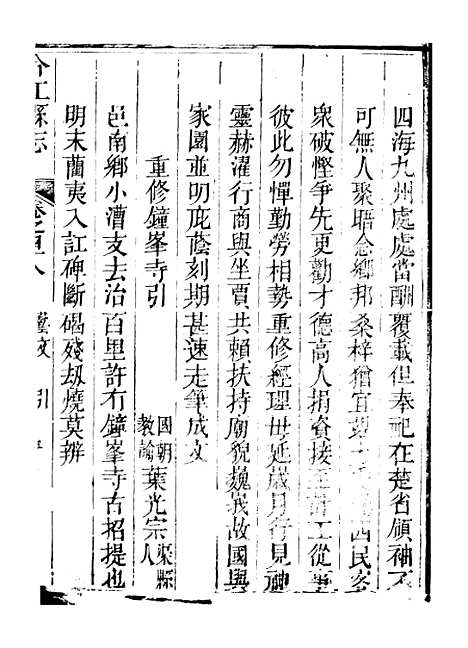 四海九州處處當酬覆載但奉祀在楚省領袖不
可無人聚晤念鄉邦桑梓猶宜 西民客
衆破慳爭先更勸才德高人捐貲接 工從事
彼此勿憚勤勞相勢重修經理毋延歲月行見神
靈赫濯行商與坐賈共賴扶持廟貌巍峩故國與
家園並明庇蔭刻期甚速走筆成文
重修鐘峯寺引
國朝教諭葉光宗渠縣人
邑南鄉小漕支去治百里許有鐘峯寺古招提也
明末藺夷入訌碑斷碣殘刼燒莫辨
合江縣志 卷之 藝文 引